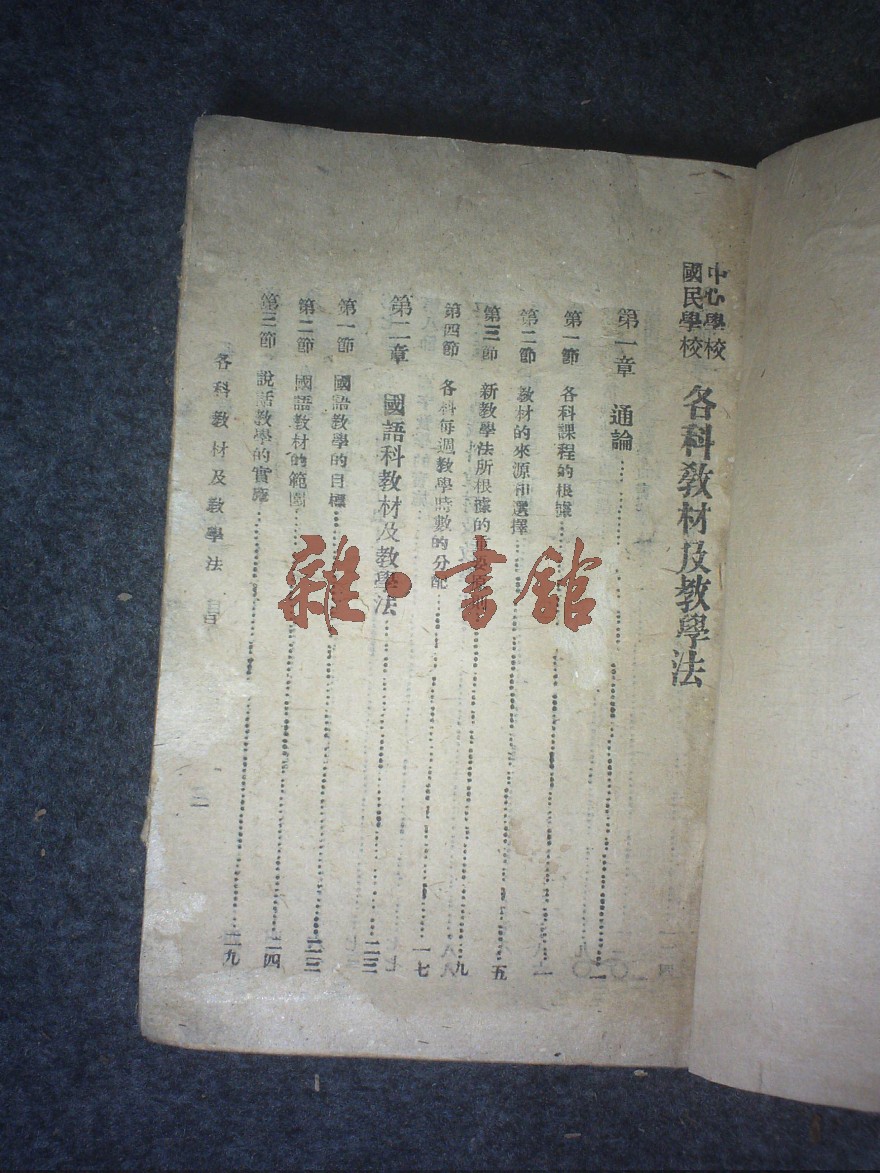 中心學校
國民學校
各科教材及教學法
第一章 通論 一
第一節 各科課程的根據 一
第二節 教材的來源和選擇 五
第三節 新教學法所根據的重要原則 九
第四節 各科每週教學時數的分配 一七
第二章 國語科教材及教學法 二三
第一節 國語教學的目標 二三
第二節 國語教材的範圍 二四
第三節 說話教學的實際 二九
各科教材及教學法 目
雜·書館